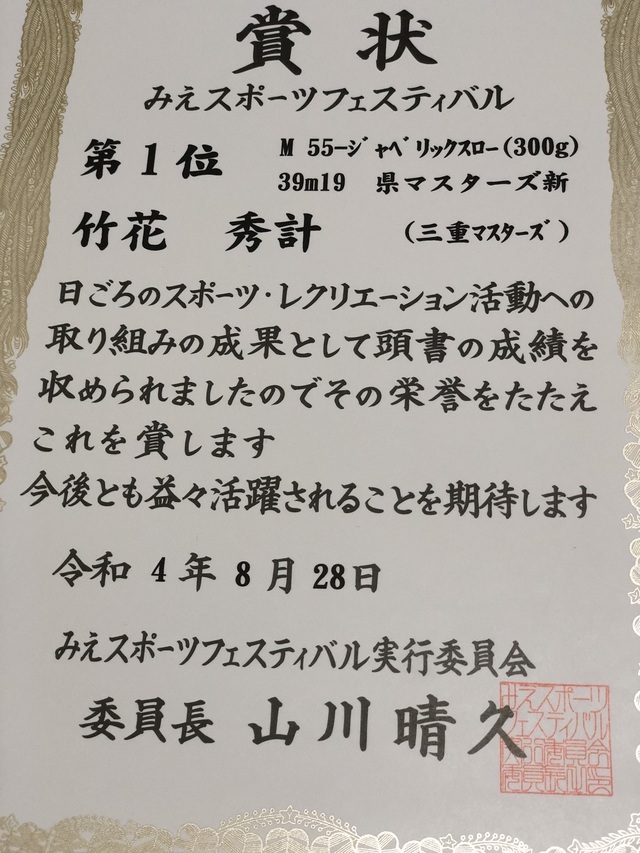 賞状
みえスポーツフェスティバル
第1位
M 55-ジャベリックスロー(300g)
39m19 県マスターズ新
竹花 秀計
(三重マスターズ)
日ごろのスポーツ・レクリエーション活動への
取り組みの成果として頭書の成績を
収められましたのでその栄誉をたたえ
これを賞します
今後とも益々活躍されることを期待します
令和 4 年 8 月 28日
みえスポーツフェスティバル実行委員会
委員長 山川晴久
みえスポーツ
フェスティバル
実行委員会
委員長之印